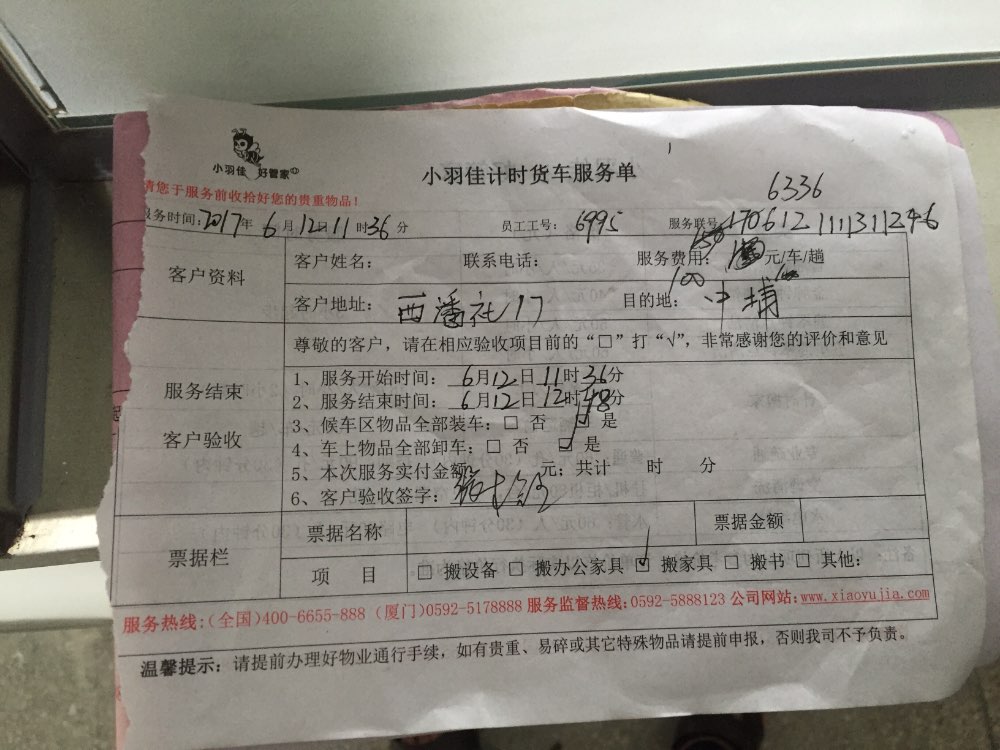 小羽佳 好管家
小羽佳计时货车服务单
请您于服务前收拾好您的贵重物品！
6336
服务时间：2017年 6月12日11时36分 员工工号： 6995 服务联号 170612111131246
客户资料
客户姓名： 联系电话： 服务费用： 150 元/车/趟
100
客户地址： 西潘社17 目的地： 中埔
尊敬的客户，请在相应验收项目前的“□”打“√”，非常感谢您的评价和意见
服务结束
客户验收
1、服务开始时间： 6月12日11时36分
2、服务结束时间： 6月12日12时48分
3、候车区物品全部装车：□ 否 ☑ 是
4、车上物品全部卸车：□ 否 ☑ 是
5、本次服务实付金额： 元；共计 时 分
6、客户验收签字：
票据栏
票据名称 票据金额
项 目 □ 搬设备 □ 搬办公家具 ☑ 搬家具 □ 搬书 □ 其他：
服务热线：（全国）400-6655-888（厦门）0592-5178888 服务监督热线：0592-5888123 公司网站：www.xiaoyujia.com
温馨提示：请提前办理好物业通行手续，如有贵重、易碎或其它特殊物品请提前申报，否则我司不予负责。